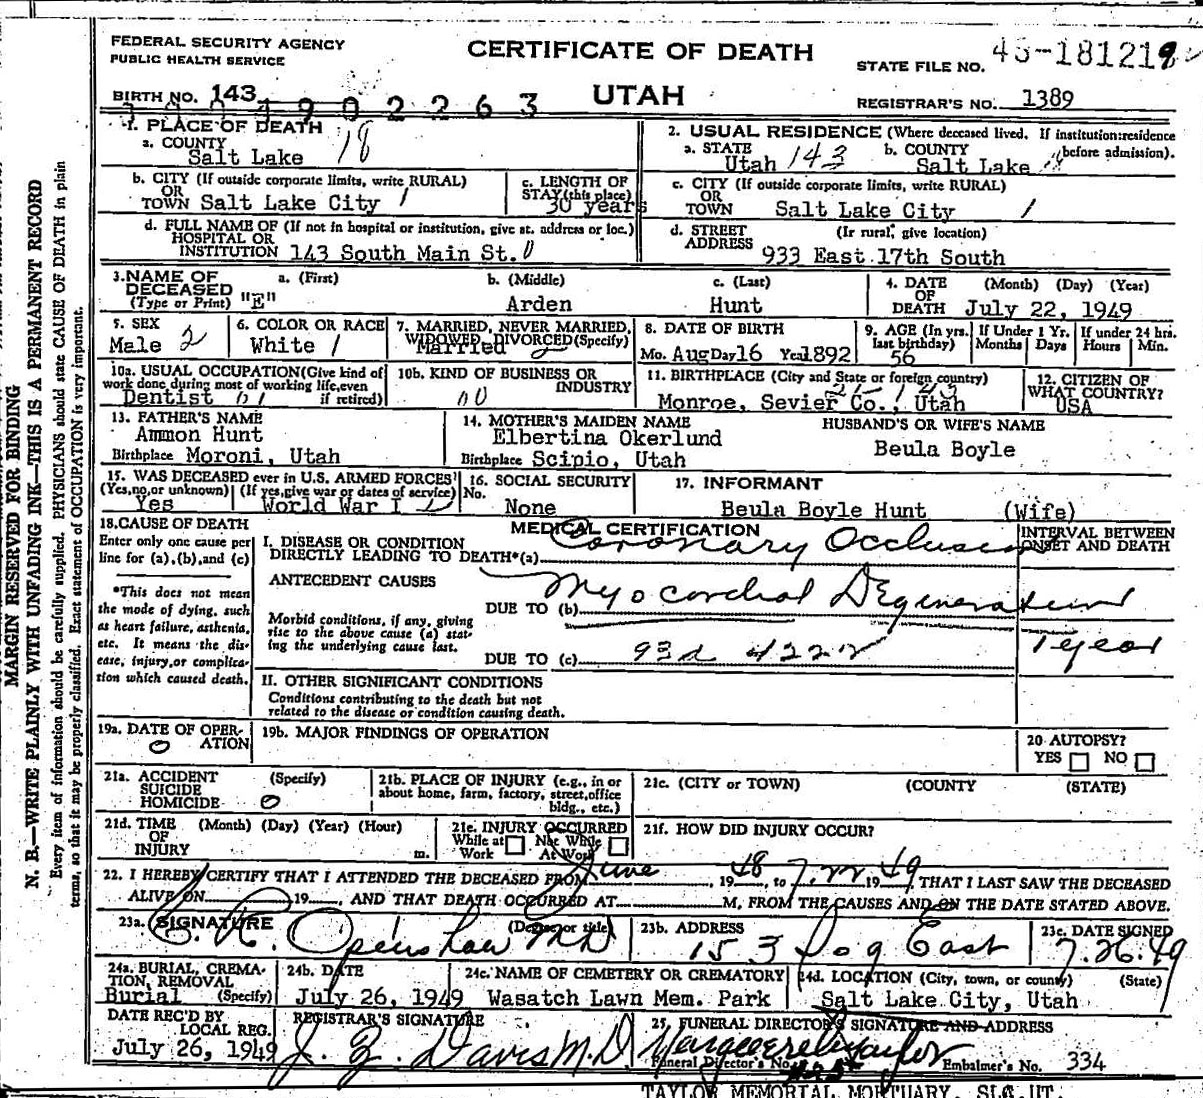 FEDERAL SECURITY AGENCY
PUBLIC HEALTH SERVICE
CERTIFICATE OF DEATH
STATE FILE NO.
BIRTH NO. 143
UTAH
REGISTRAR'S NO. 1389
1. PLACE OF DEATH
a. COUNTY
Salt Lake 18
2. USUAL RESIDENCE (Where deceased lived. If institution: residence before admission).
a. STATE Utah 143 b. COUNTY Salt Lake
b. CITY (If outside corporate limits, write RURAL)
OR
TOWN Salt Lake City 1
c. LENGTH OF
STAY (this place)
30 years
c. CITY (If outside corporate limits, write RURAL)
OR
TOWN Salt Lake City 1
d. FULL NAME OF (If not in hospital or institution, give st. address or loc.)
HOSPITAL OR
INSTITUTION 143 South Main St. 0
d. STREET (If rural, give location)
ADDRESS 933 East 17th South
3. NAME OF DECEASED
(Type or Print)
a. (First) b. (Middle) c. (Last)
"E" Arden Hunt
4. DATE OF DEATH (Month) (Day) (Year)
July 22, 1949
5. SEX
Male 2
6. COLOR OR RACE
White 1
7. MARRIED, NEVER MARRIED,
WIDOWED, DIVORCED (Specify)
Married 2
8. DATE OF BIRTH
Mo. Aug Day 16 Year 1892
9. AGE (In yrs. last birthday)
56
If Under 1 Yr.
Months Days
If under 24 hrs.
Hours Min.
10a. USUAL OCCUPATION (Give kind of
work done during most of working life, even
if retired)
Dentist
10b. KIND OF BUSINESS OR
INDUSTRY
11. BIRTHPLACE (City and State or foreign country)
Monroe, Sevier Co., Utah
12. CITIZEN OF
WHAT COUNTRY?
USA
13. FATHER'S NAME
Ammon Hunt
Birthplace Moroni, Utah
14. MOTHER'S MAIDEN NAME
Elbertina Okerlund
Birthplace Scipio, Utah
HUSBAND'S OR WIFE'S NAME
Beula Boyle
15. WAS DECEASED ever in U.S. ARMED FORCES?
(Yes, no, or unknown) (If yes, give war or dates of service)
Yes World War I
16. SOCIAL SECURITY
No.
None
17. INFORMANT
Beula Boyle Hunt (Wife)
18. CAUSE OF DEATH
Enter only one cause per
line for (a), (b), and (c)
*This does not mean
the mode of dying, such
as heart failure, asthenia,
etc. It means the dis-
ease, injury, or complica-
tion which caused death.
MEDICAL CERTIFICATION
INTERVAL BETWEEN
ONSET AND DEATH
I. DISEASE OR CONDITION
DIRECTLY LEADING TO DEATH*(a) Coronary Occlusion
ANTECEDENT CAUSES
DUE TO (b) Myocardial Degeneration
Morbid conditions, if any, giving
rise to the above cause (a) stat-
ing the underlying cause last.
1 year
DUE TO (c) 93d
II. OTHER SIGNIFICANT CONDITIONS
Conditions contributing to the death but not
related to the disease or condition causing death.
19a. DATE OF OPER-
ATION
0
19b. MAJOR FINDINGS OF OPERATION
20 AUTOPSY?
YES NO
21a. ACCIDENT (Specify)
SUICIDE
HOMICIDE 0
21b. PLACE OF INJURY (e.g., in or
about home, farm, factory, street, office
bldg., etc.)
21c. (CITY or TOWN) (COUNTY) (STATE)
21d. TIME (Month) (Day) (Year) (Hour)
OF
INJURY m.
21e. INJURY OCCURRED
While at Not While
Work At Work
21f. HOW DID INJURY OCCUR?
22. I HEREBY CERTIFY THAT I ATTENDED THE DECEASED FROM June, 1948, to 7, 1949, THAT I LAST SAW THE DECEASED
ALIVE ON 19 , AND THAT DEATH OCCURRED AT M, FROM THE CAUSES AND ON THE DATE STATED ABOVE.
23a. SIGNATURE (Degree or title)
C. R. Openshaw MD
23b. ADDRESS
153 So 9 East
23c. DATE SIGNED
7.26.49
24a. BURIAL, CREMA-
TION, REMOVAL
Burial (Specify)
24b. DATE
July 26, 1949
24c. NAME OF CEMETERY OR CREMATORY
Wasatch Lawn Mem. Park
24d. LOCATION (City, town, or county) (State)
Salt Lake City, Utah
DATE REC'D BY
LOCAL REG.
July 26, 1949
REGISTRAR'S SIGNATURE
Davis M.D.
25. FUNERAL DIRECTOR'S SIGNATURE AND ADDRESS
Funeral Director's No.
Embalmer's No. 334
TAYLOR MEMORIAL MORTUARY, SLC, UT.
MARGIN RESERVED FOR BINDING
N. B.—WRITE PLAINLY WITH UNFADING INK—THIS IS A PERMANENT RECORD
Every item of information should be carefully supplied. PHYSICIANS should state CAUSE OF DEATH in plain
terms, so that it may be properly classified. Exact statement of OCCUPATION is very important.